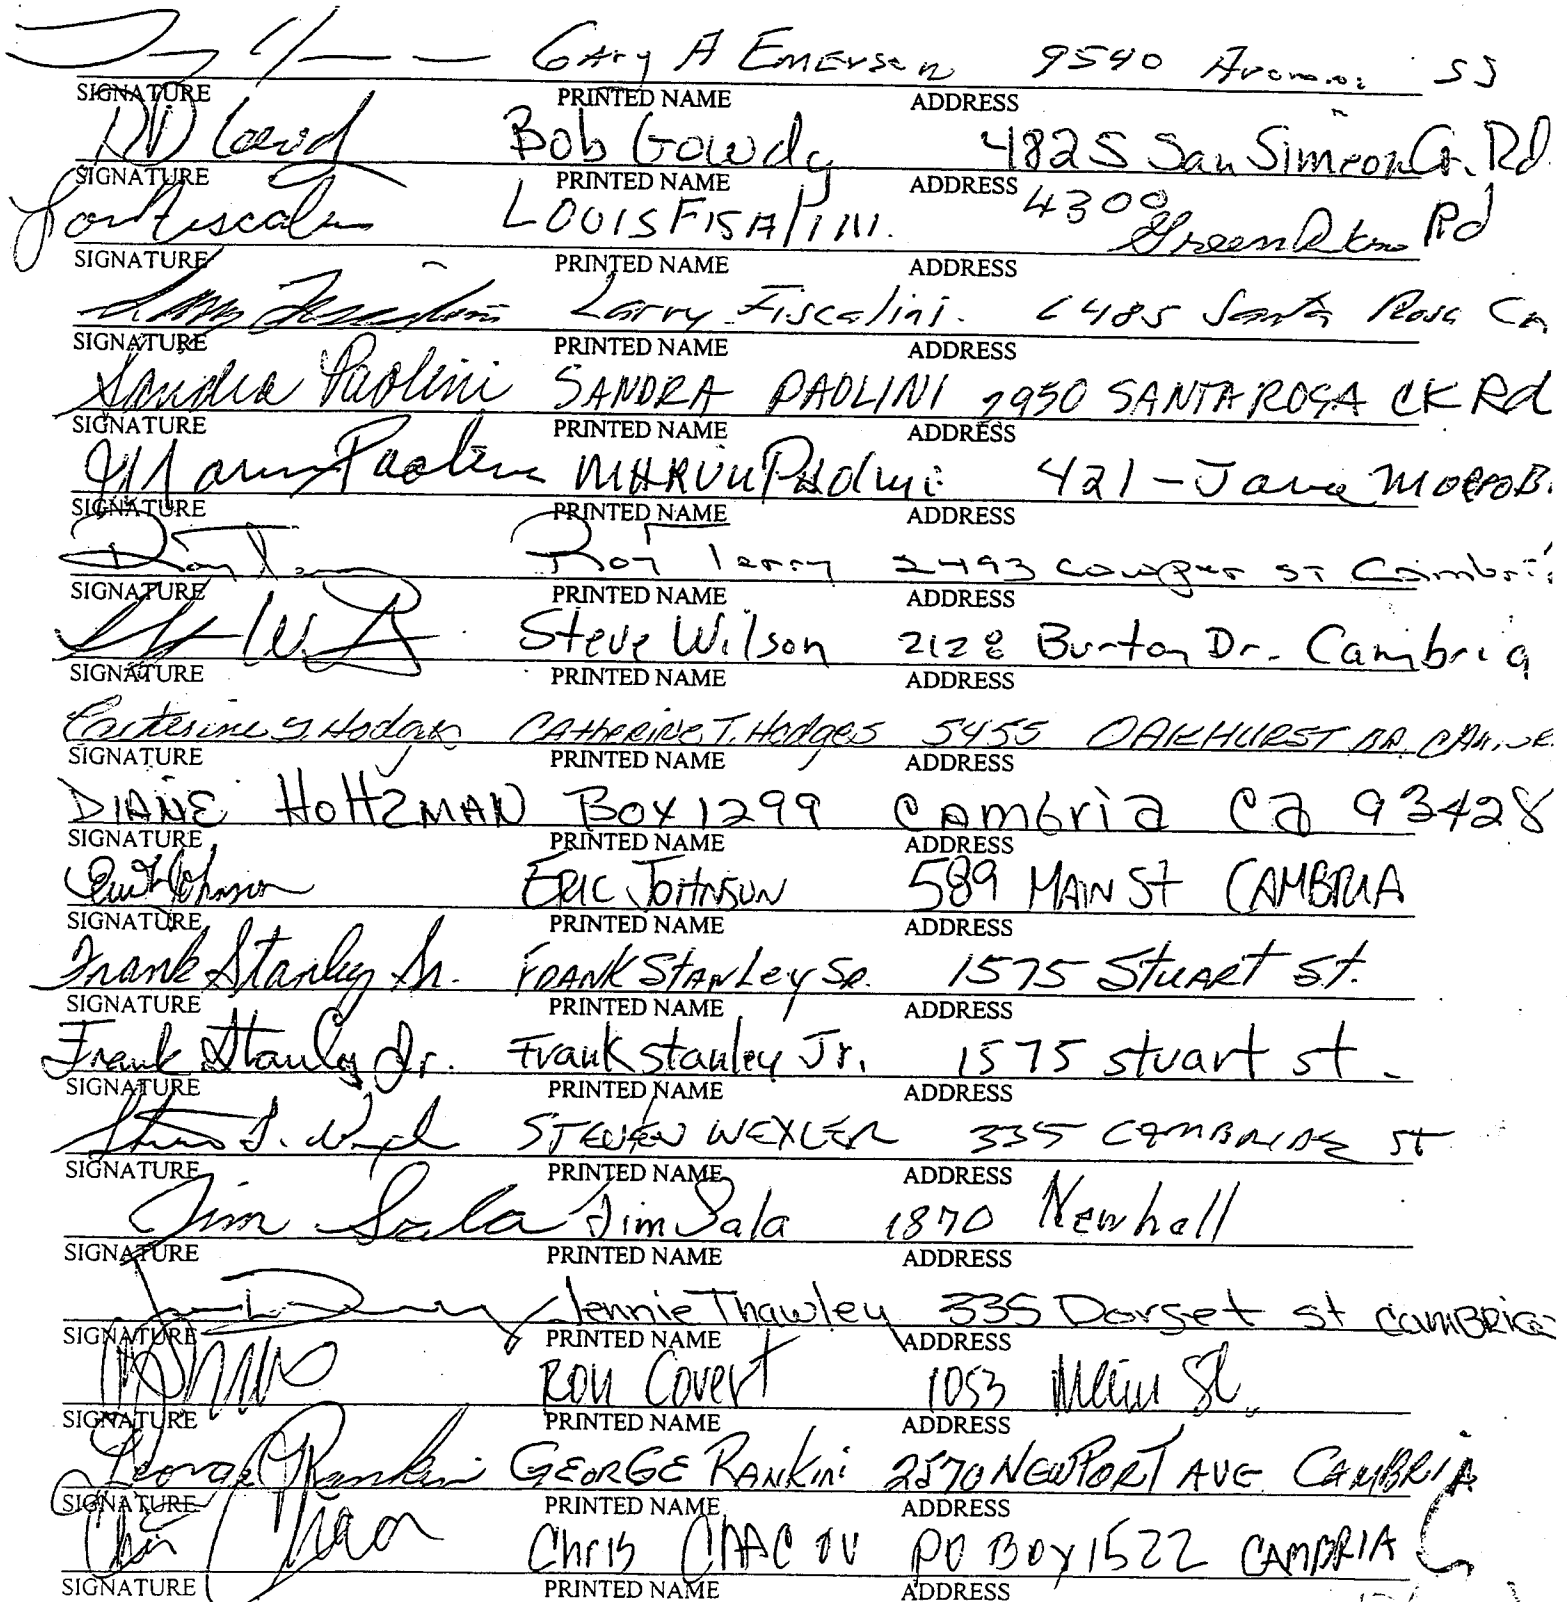 Gary A Emerson 9540 SS
SIGNATURE PRINTED NAME ADDRESS
Bob Gowdy 4825 San Simeon Cr. Rd.
SIGNATURE PRINTED NAME ADDRESS
LOUIS FISALINI. 4300 Green Rd
SIGNATURE PRINTED NAME ADDRESS
Larry Fiscalini. 6485 Santa Rosa Cn
SIGNATURE PRINTED NAME ADDRESS
Sandra Paolini SANDRA PAOLINI 2950 SANTA ROSA CK Rd
SIGNATURE PRINTED NAME ADDRESS
Paolini 421 - Java MORROB.
SIGNATURE PRINTED NAME ADDRESS
Roy Terry 2493 cowper ST Cambri
SIGNATURE PRINTED NAME ADDRESS
Steve Wilson 2128 Burton Dr. Cambria
SIGNATURE PRINTED NAME ADDRESS
Catherine T. Hodges CAtHeRiNe T. Hodges 5455 OAKHURST DR.
SIGNATURE PRINTED NAME ADDRESS
DIANE HoltzMAN Box 1299 CAmbria Ca 93428
SIGNATURE PRINTED NAME ADDRESS
Johnson ERIC JOHNSON 589 MAIN St CAMBRIA
SIGNATURE PRINTED NAME ADDRESS
Frank Stanley Sr. FRANK StANLey SR. 1575 StuARt St.
SIGNATURE PRINTED NAME ADDRESS
Frank Stanley Jr. Frank stanley Jr. 1575 stuart st.
SIGNATURE PRINTED NAME ADDRESS
STEVEN WEXLER 335 CAMBRIDGE St
SIGNATURE PRINTED NAME ADDRESS
Jim Sala Jim Sala 1870 Newhall
SIGNATURE PRINTED NAME ADDRESS
Jennie Thawley 335 Dorset st CamBRia
SIGNATURE PRINTED NAME ADDRESS
RON Covert 1053 Main St.
SIGNATURE PRINTED NAME ADDRESS
George Rankin GEORGE RANKIN 2570 NEWPORT AVE CAMBRIA
SIGNATURE PRINTED NAME ADDRESS
Chris PO BOX 1522 CAMBRIA
SIGNATURE PRINTED NAME ADDRESS